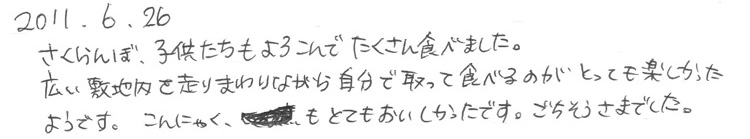 2011.6.26
さくらんぼ、子供たちもよろこんでたくさん食べました。
広い敷地内を走りまわりながら自分で取って食べるのがとっても楽しかった
ようです。こんにゃく、もとてもおいしかったです。ごちそうさまでした。